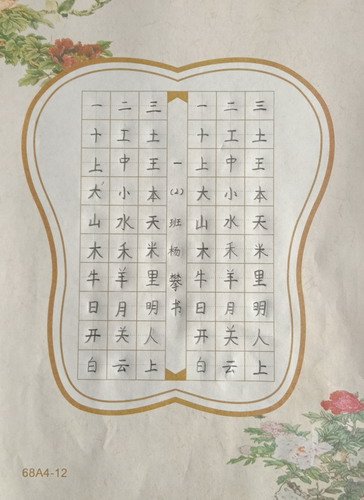 一 二 三
十 工 土
上 中 王
大 小 本
山 水 天
木 禾 米
牛 羊 里
日 月 明
开 关 人
白 云 上
一(2)班杨攀书
一 二 三
十 工 土
上 中 王
大 小 本
山 水 天
木 禾 米
牛 羊 里
日 月 明
开 关 人
白 云 上
68A4-12